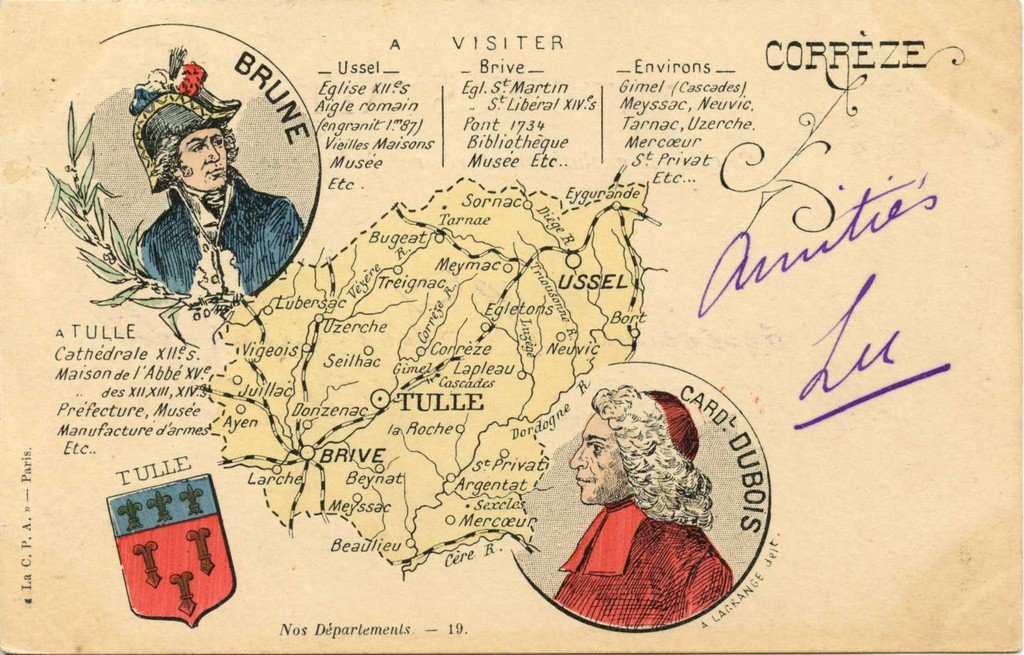 A VISITER
CORRÈZE
BRUNE
Ussel
Eglise XIIes
Aigle romain
(en granit 1m87)
Vieilles Maisons
Musée
Etc.
Brive
Egl. St Martin
" St Libéral XIVes
Pont 1734
Bibliothèque
Musée Etc..
Environs
Gimel (Cascades)
Meyssac, Neuvic,
Tarnac, Uzerche,
Mercœur
St Privat
Etc...
Amitiés
Lu
A TULLE
Cathédrale XIIes.
Maison de l'Abbé XVe
" des XII, XIII, XIVs
Préfecture, Musée
Manufacture d'armes
Etc..
Eygurande
Sornac
Diège R.
Tarnac
Bugeat
Meymac
USSEL
Vézère R.
Treignac
Corrèze R.
Triousonne R.
Lubersac
Uzerche
Egletons
Luzège
Bort
Vigeois
Seilhac
Corrèze
Neuvic
Gimel
Lapleau
Cascades
Juillac
TULLE
Donzenac
Ayen
la Roche
Dordogne R.
BRIVE
St Privat
Larche
Beynat
Argentat
Meyssac
Sexcles
Mercœur
Beaulieu
Cère R.
CARDL DUBOIS
A LAGRANGE delt.
TULLE
« La C. P. A. » — Paris.
Nos Départements. — 19.